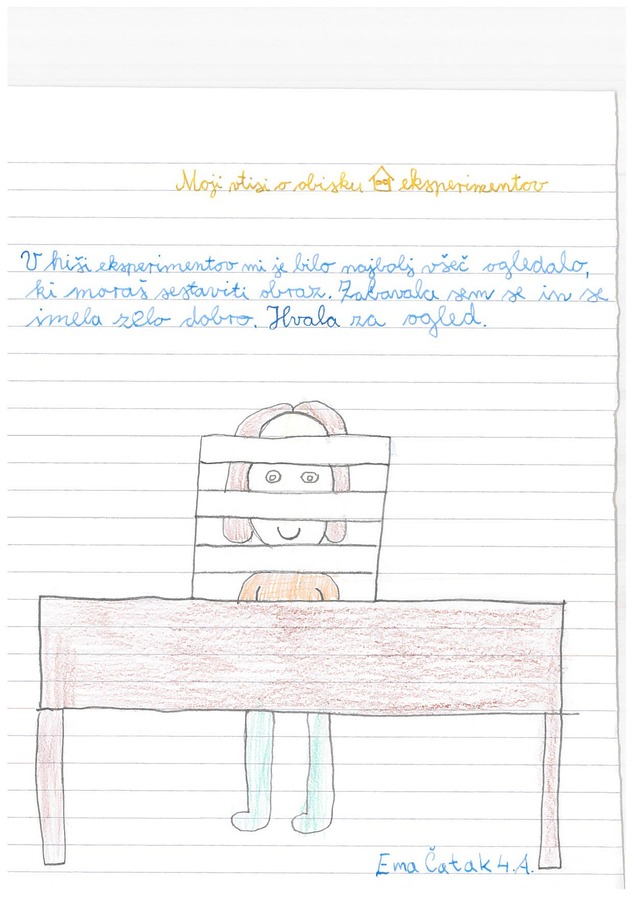 Moji vtisi o obisku eksperimentov
V hiši eksperimentov mi je bilo najbolj všeč ogledalo,
ki moraš sestaviti obraz. Zabavala sem se in se
imela zelo dobro. Hvala za ogled.
Ema Čatak 4.A.